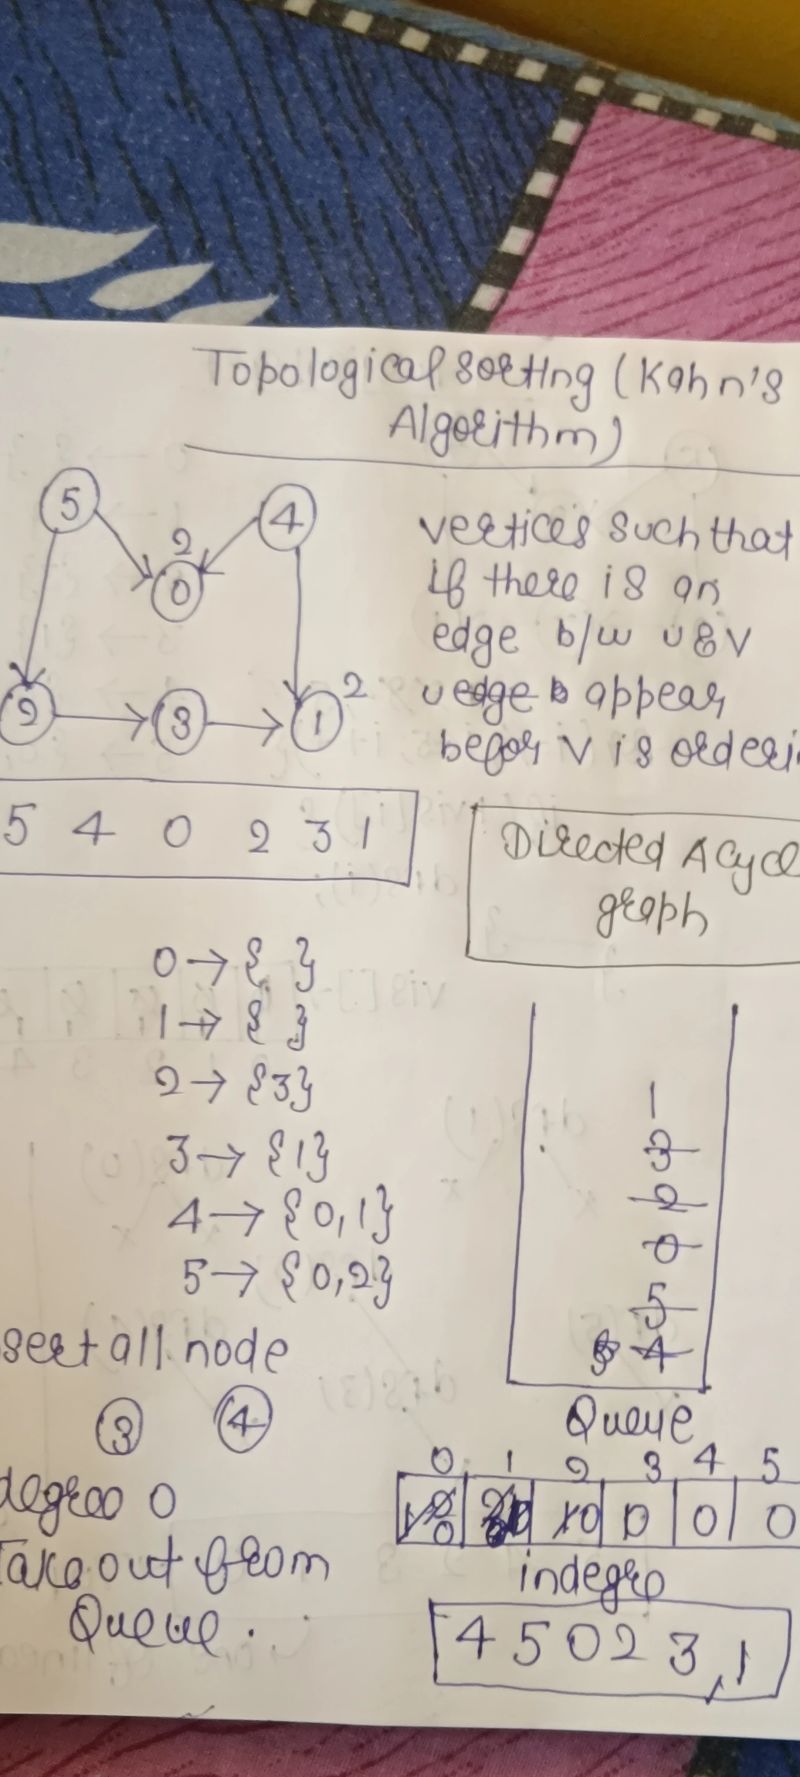 Topological sorting (Kahn's
Algorithm)
5
4
2
0
2
3
1
2
vertices such that
if there is an
edge b/w u & v
uedge appear
befor v is orderi
5 4 0 2 3 1
Directed Acycl
graph
0 → { }
1 → { }
2 → {3}
3 → {1}
4 → {0,1}
5 → {0,2}
1
3
2
0
5
4
Queue
sert all node
3 4
degree 0
Take out from
Queue.
0 1 2 3 4 5
0 0 10 0 0 0
indegre
4 5 0 2 3, 1